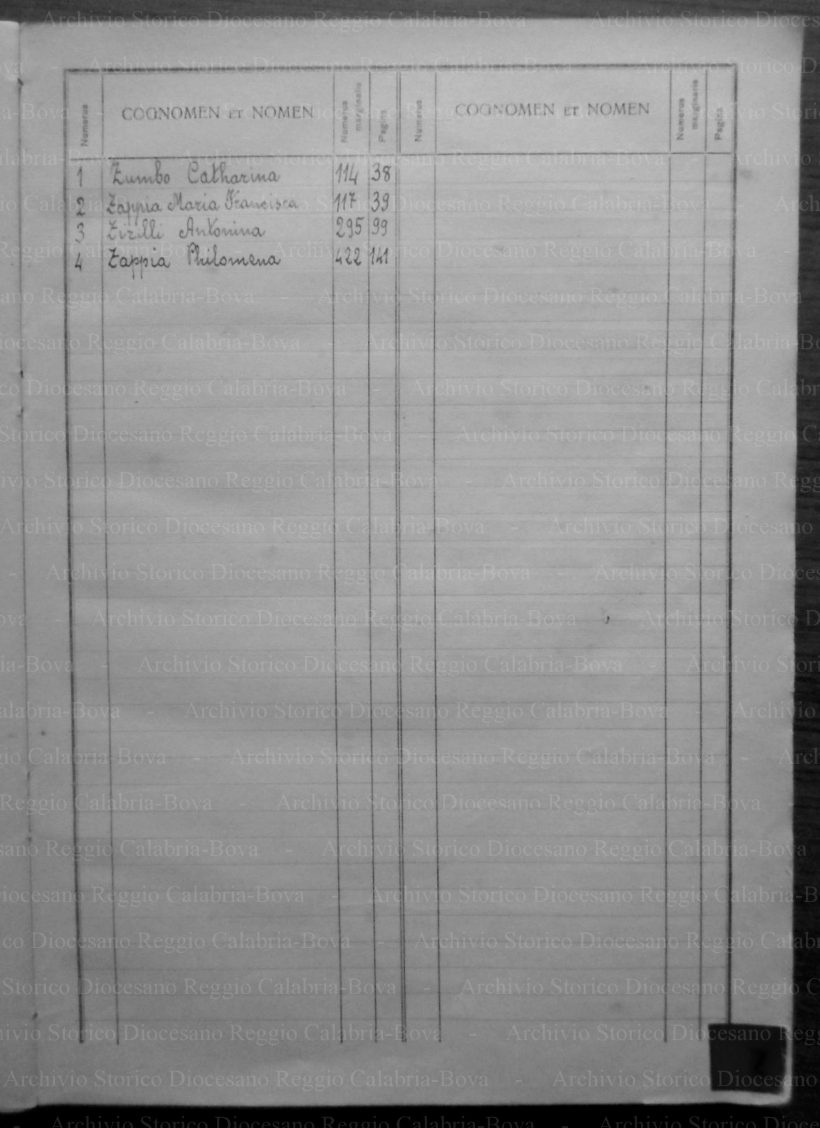 Numerus COGNOMEN ET NOMEN Numerus marginalis Pagina Numerus COGNOMEN ET NOMEN Numerus marginalis Pagina
1 Zumbo Catharina 114 38
2 Zappia Maria Francisca 117 39
3 Zirilli Antonina 295 99
4 Zappia Philomena 422 141
Archivio Storico Diocesano Reggio Calabria-Bova